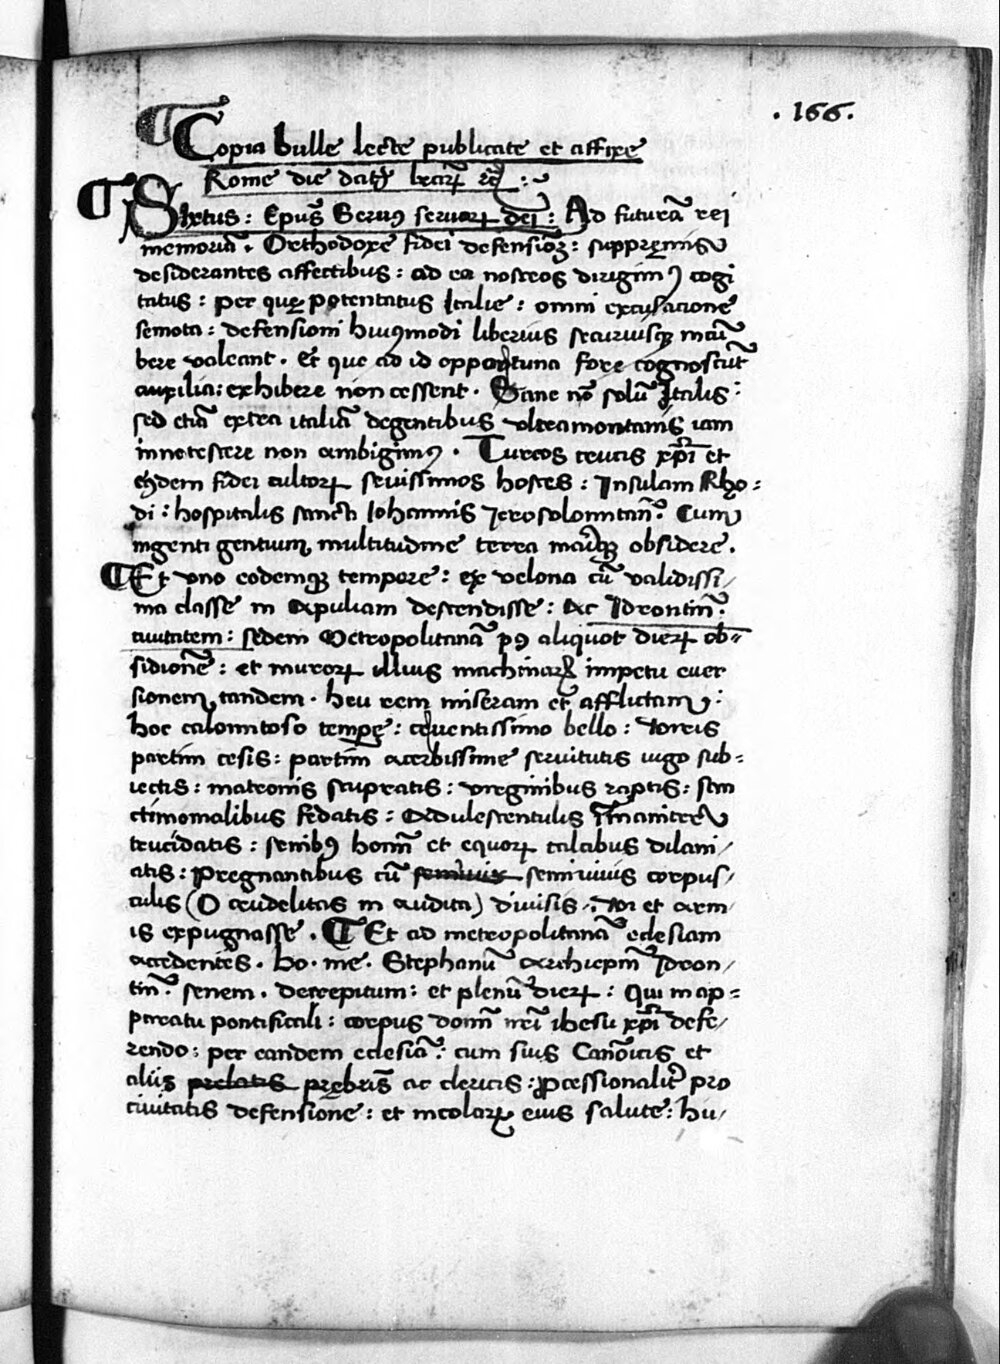 . 166 .
Copia bulle lecte publicate et affixe
Rome die dat̃ lrarꝝ
Sixtus : Ep̃us Seruꝰ seruorꝝ dei : Ad futurã rei
memoriã . Orthodoxe fidei defensiõẽ : suppremis
desiderantes affectibus : ad ea nostros dirigimꝰ cogi
tatus : per que potentatus Italie : omni excusatione
semota : defensioni huiꝰmodi liberius securiusqꝫ incũ
bere valeant . Et que ad id opportuna fore cognoscũt
auxilia : exhibere non cessent . Sane nõ solũ Italis :
sed etiã extra italiã degentibus vltramontanis iam
innotescere non ambigimꝰ . Turcos crucis xp̃i et
eiusdem fidei cultorꝝ seuissimos hostes : Insulam Rho =
di : hospitalis sancti Iohannis Jerosolomitañ . Cum
ingenti gentium multitudine terra mariqꝫ obsidere .
Et vno eodemqꝫ tempore : ex velona cũ validissi /
ma classe in Apuliam descendisse : Ac Idrontiñ .
ciuitatem : sedem Metropolitanã pꝰ aliquot dierꝝ ob =
sidionẽ : et murorꝝ illius machinarꝝ impetu euer
sionem tandem . heu rem miseram et afflictam :
hoc calomitoso tempore : cruentissimo bello : viris
partim cesis : partim acerbissime seruitutis iugo sub =
iectis : matronis stupratis : virginibus raptis : san
ctimonialibus fedatis : Adulescentulis
trucidatis : senibꝰ hom̃ et equorꝝ calcibus dilani /
atis : Pregnantibus cũ seminiuis semiuiuis corpus /
culis ( O crudelitas in audita ) diuisis . vi et arm
is expugnasse . Et ad metropolitanã eclesiam
accedentes . bo . me . Stephanũ archiep̃m Idron /
tiñ . senem . decrepitum : et plenũ dierꝝ : Qui in ap =
paratu pontificali : corpus domĩ nr̃i ihesu xp̃i defe /
rendo : per eandem eclesiã : cum suis Canõicis et
aliis prelatis prẹbris̃ ac clericis : ꝓcessionalit̃ pro
ciuitatis defensione : et incolarꝝ eius salute : hu /